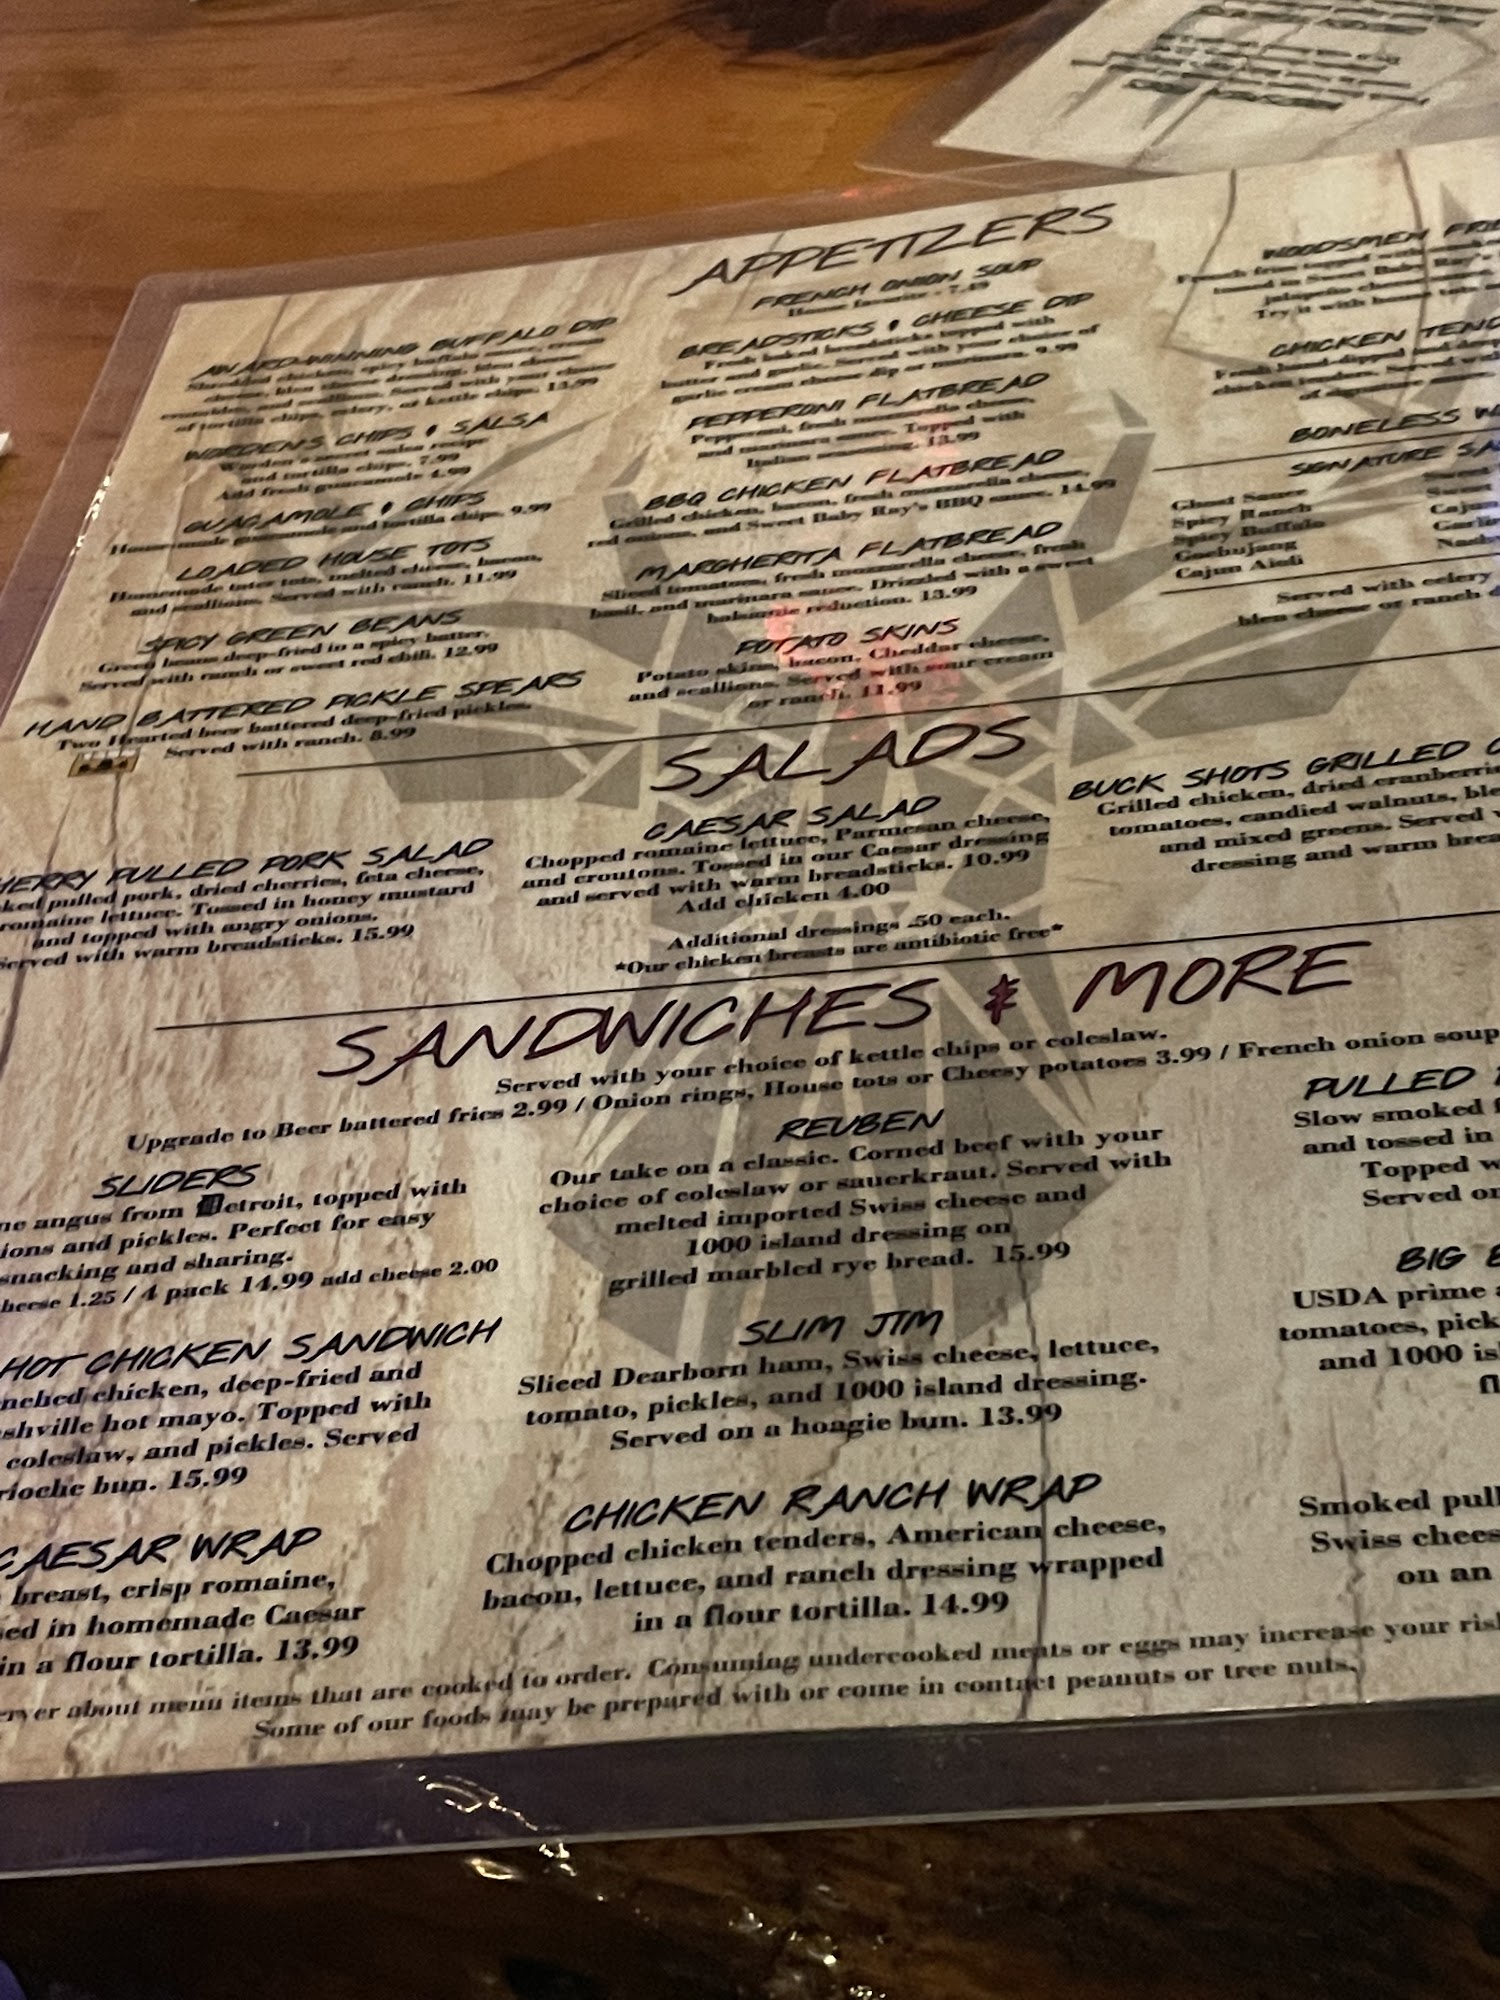 APPETIZERS
AWARD-WINNING BUFFALO DIP
Shredded chicken, spicy buffalo sauce, cream
cheese, bleu cheese dressing, bleu cheese
crumbles, and scallions. Served with your choice
of tortilla chips, celery, or kettle chips. 13.99
WORDEN'S CHIPS & SALSA
Worden's secret salsa recipe
and tortilla chips. 7.99
Add fresh guacamole 4.99
GUACAMOLE & CHIPS
House-made guacamole and tortilla chips. 9.99
LOADED HOUSE TOTS
Homemade tater tots, melted cheese, bacon,
and scallions. Served with ranch. 11.99
SPICY GREEN BEANS
Green beans deep-fried in a spicy batter.
Served with ranch or sweet red chili. 12.99
HAND BATTERED PICKLE SPEARS
Two Hearted beer battered deep-fried pickles.
Served with ranch. 8.99
FRENCH ONION SOUP
House favorite - 7.49
BREADSTICKS & CHEESE DIP
Fresh baked breadsticks topped with
butter and garlic. Served with your choice of
garlic cream cheese dip or marinara. 9.99
PEPPERONI FLATBREAD
Pepperoni, fresh mozzarella cheese,
and marinara sauce. Topped with
Italian seasoning. 13.99
BBQ CHICKEN FLATBREAD
Grilled chicken, bacon, fresh mozzarella cheese,
red onions, and Sweet Baby Ray's BBQ sauce. 14.99
MARGHERITA FLATBREAD
Sliced tomatoes, fresh mozzarella cheese, fresh
basil, and marinara sauce. Drizzled with a sweet
balsamic reduction. 13.99
POTATO SKINS
Potato skins, bacon, Cheddar cheese,
and scallions. Served with sour cream
or ranch. 11.99
WOODSMEN FRIE
French fries topped with
tossed in Sweet Baby Ray's
jalapeño cheese
Try it with house tots
CHICKEN TEND
Fresh hand-dipped and deep
chicken tenders. Served with
of signature sauce.
BONELESS W
SIGNATURE SA
Ghost Sauce Sweet
Spicy Ranch Sweet
Spicy Buffalo Cajun
Gochujang Garlic
Cajun Aioli Nash
Served with celery
bleu cheese or ranch d
SALADS
HERRY PULLED PORK SALAD
ked pulled pork, dried cherries, feta cheese,
romaine lettuce. Tossed in honey mustard
and topped with angry onions.
Served with warm breadsticks. 15.99
CAESAR SALAD
Chopped romaine lettuce, Parmesan cheese,
and croutons. Tossed in our Caesar dressing
and served with warm breadsticks. 10.99
Add chicken 4.00
Additional dressings .50 each.
*Our chicken breasts are antibiotic free*
BUCK SHOTS GRILLED C
Grilled chicken, dried cranberri
tomatoes, candied walnuts, ble
and mixed greens. Served
dressing and warm brea
SANDWICHES & MORE
Served with your choice of kettle chips or coleslaw.
Upgrade to Beer battered fries 2.99 / Onion rings, House tots or Cheesy potatoes 3.99 / French onion soup
SLIDERS
ne angus from Detroit, topped with
ions and pickles. Perfect for easy
snacking and sharing.
heese 1.25 / 4 pack 14.99 add cheese 2.00
HOT CHICKEN SANDWICH
nched chicken, deep-fried and
shville hot mayo. Topped with
coleslaw, and pickles. Served
rioche bun. 15.99
CAESAR WRAP
breast, crisp romaine,
sed in homemade Caesar
in a flour tortilla. 13.99
REUBEN
Our take on a classic. Corned beef with your
choice of coleslaw or sauerkraut. Served with
melted imported Swiss cheese and
1000 island dressing on
grilled marbled rye bread. 15.99
SLIM JIM
Sliced Dearborn ham, Swiss cheese, lettuce,
tomato, pickles, and 1000 island dressing.
Served on a hoagie bun. 13.99
CHICKEN RANCH WRAP
Chopped chicken tenders, American cheese,
bacon, lettuce, and ranch dressing wrapped
in a flour tortilla. 14.99
PULLED
Slow smoked f
and tossed in
Topped w
Served on
BIG
USDA prime a
tomatoes, pick
and 1000 isl
fl
Smoked pull
Swiss chees
on an
erver about menu items that are cooked to order. Consuming undercooked meats or eggs may increase your risk
Some of our foods may be prepared with or come in contact peanuts or tree nuts.